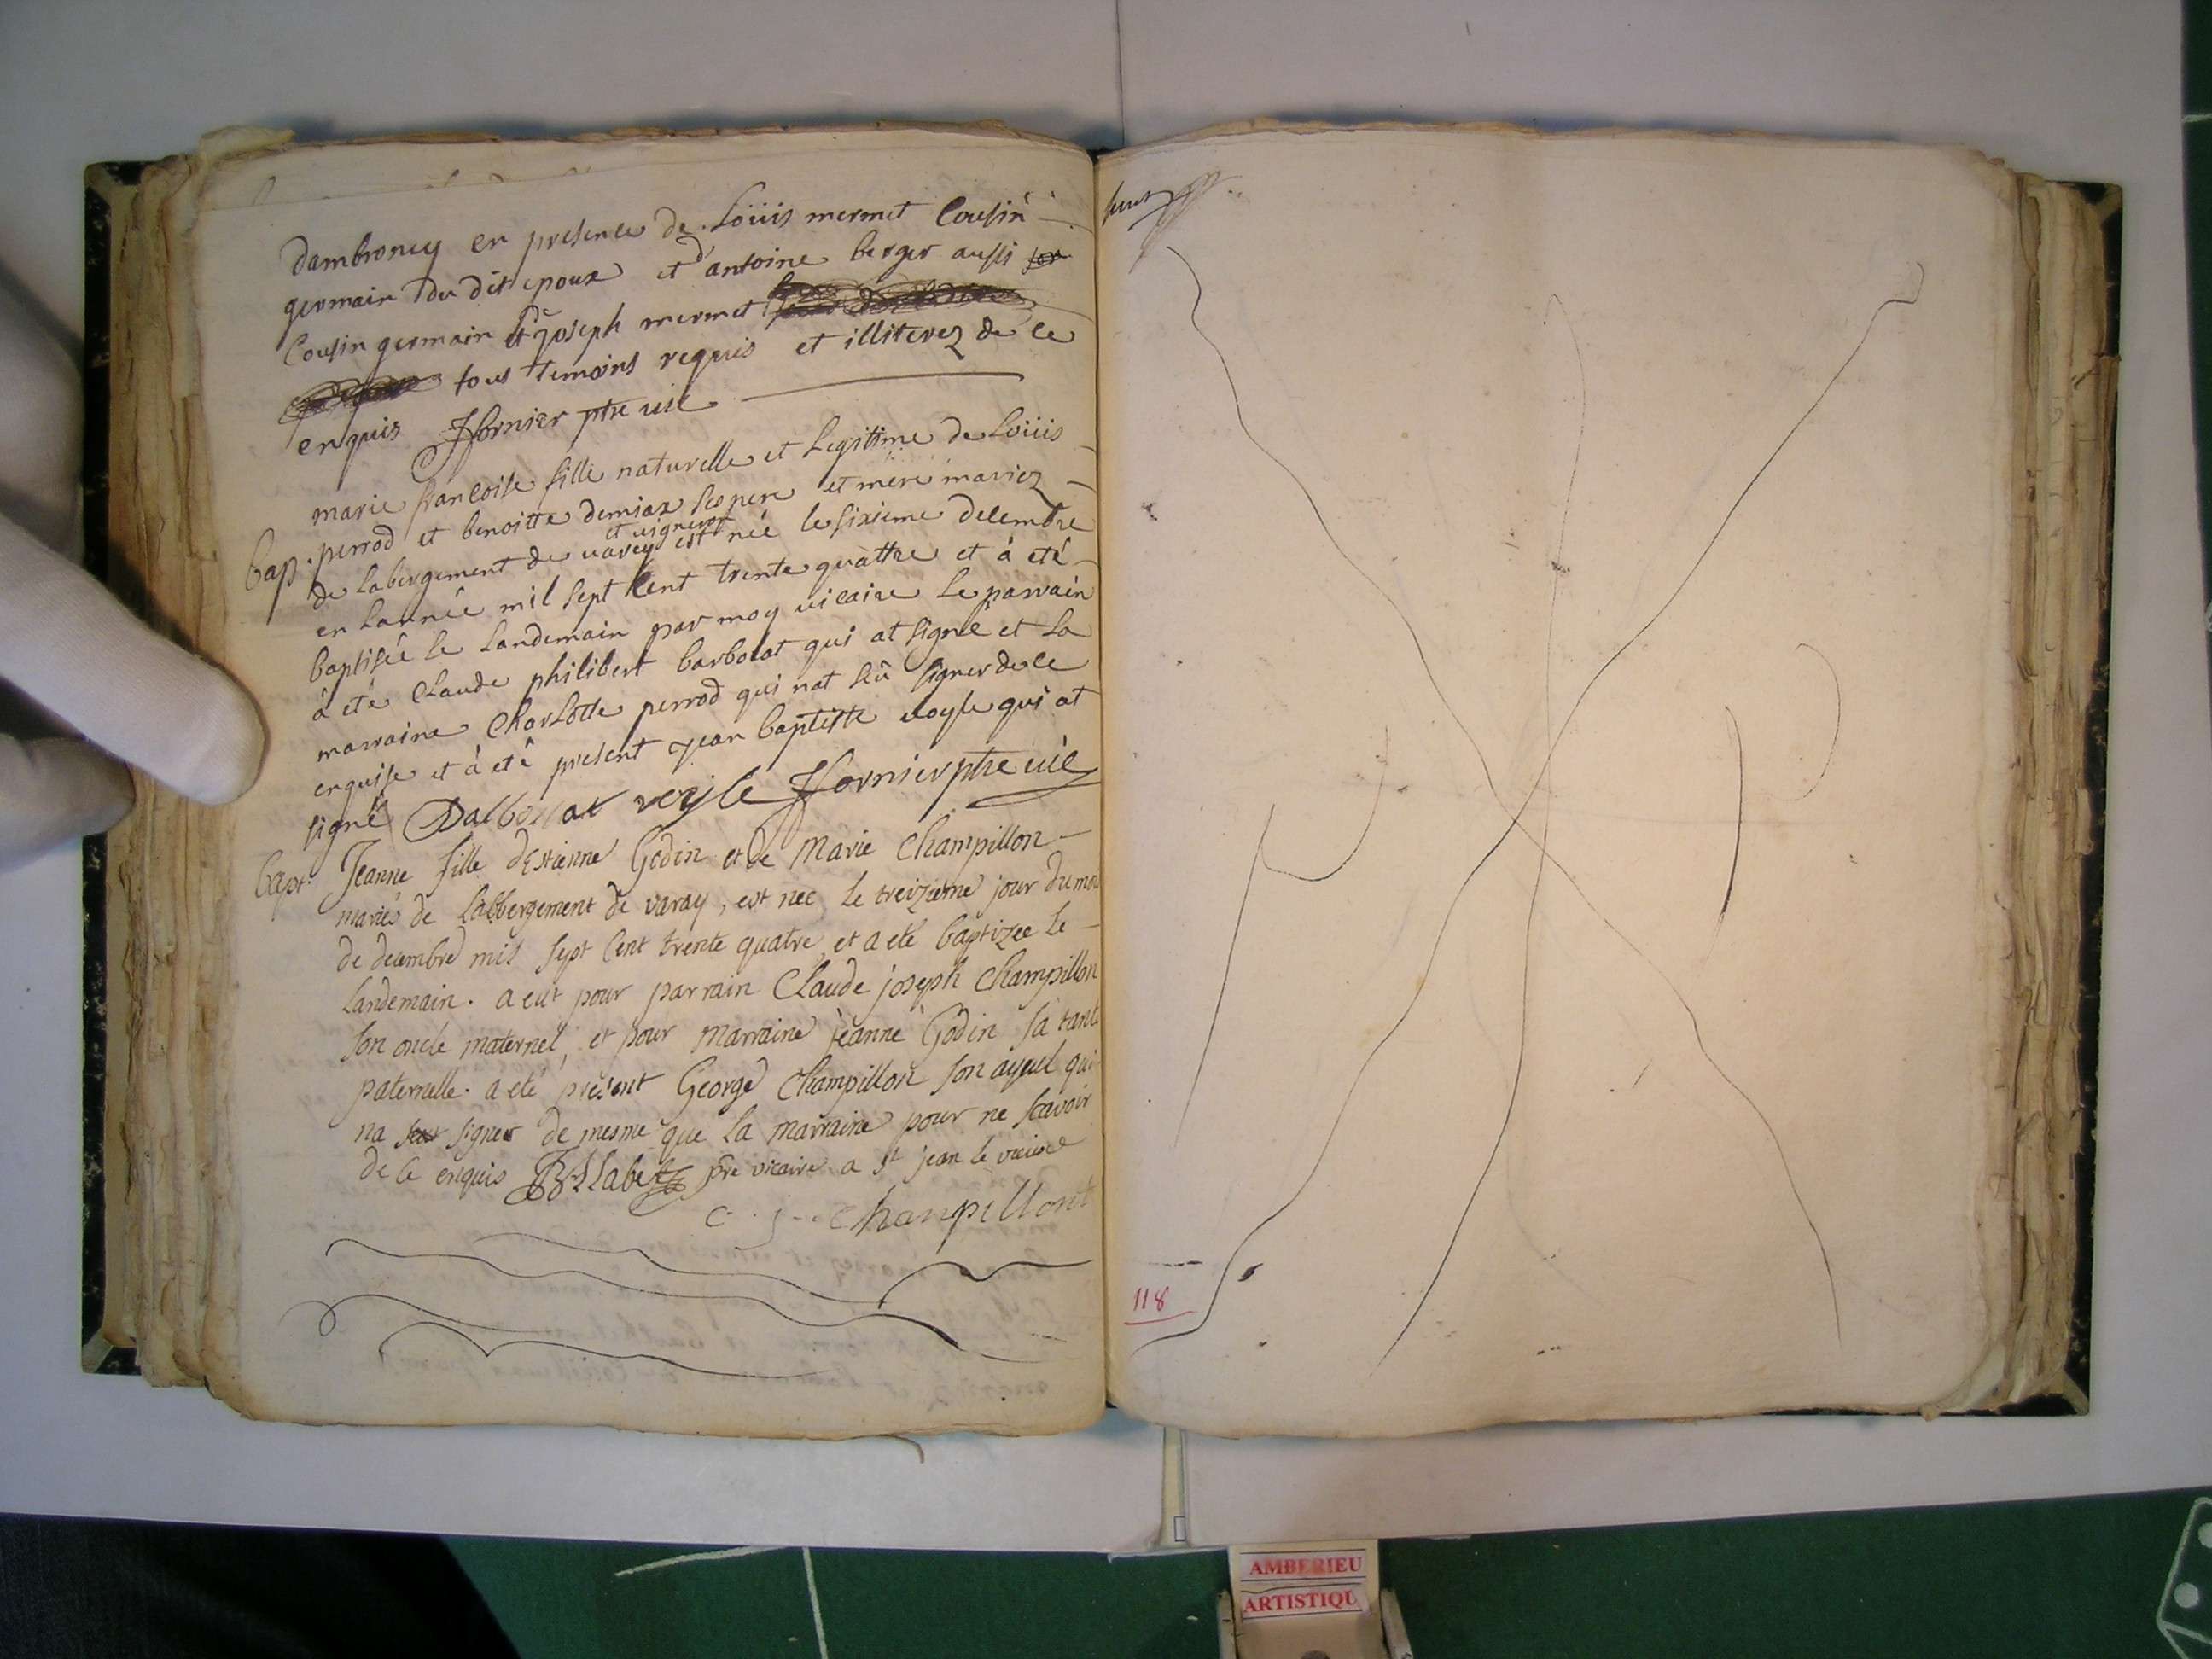 dambroney en presence de Loüis mermet Cousin
germain du dit epoux et d'antoine berger aussi
Cousin germain et joseph mermet
tous temoins requis et illiterez de ce
enquis Hornier ptre vic
marie francoise fille naturelle et Legitime de Loüis
bap. perrod et benoitte demiax ses pere et mere mariez
et vignerons
de Labergement de varey est née le sixieme decembre
en Lannée mil sept cent trente quattre et à eté
baptisée le Landemain par moy vicaire Le parrain
à eté Claude philibert barbolat qui at signé et La
marraine Charlotte perrod qui nat sçû signer de ce
enquise et à eté present jean baptiste voyle qui at
signé Hornier ptre vic
bapt. Jeanne fille d'Estienne Godin et de Marie Champillon
mariés de Labbergement de varay, est nee le treizieme jour du mois
de decembre mil sept Cent trente quatre, et a eté baptizee le
Landemain. a eut pour parrain Claude joseph Champillon
son oncle maternel, et pour Marraine jeanne Godin sa tante
paternelle. a eté present George Champillon son ayeul qui
na signer de mesme que la marraine pour ne scavoir
de ce enquis pre vicaire a st jean le vieux
c. j. Chanpillont
118
AMBERIEU
ARTISTIQU